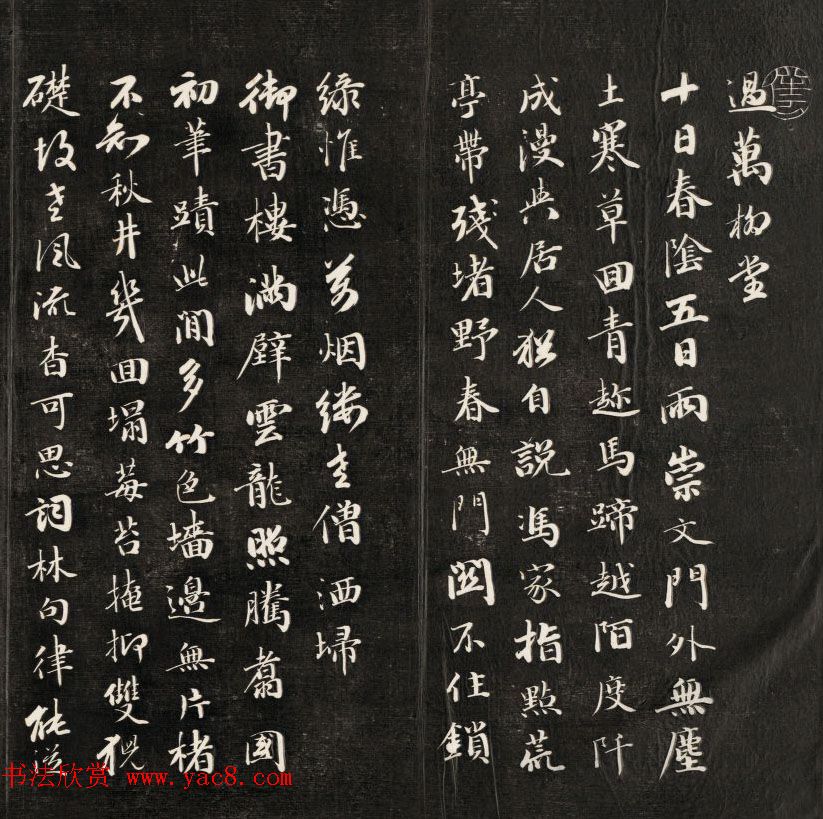 過萬柳堂
十日春陰五日雨崇文門外無塵
土寒草囬青趂馬蹄越陌度阡
成漫與居人猶自說馮家指點荒
亭帶殘堵野春無門關不住鎖
綠惟憑烟縷老僧洒埽
御書樓滿壁雲龍照騰翥國
初筆蹟此間多竹色墻邊無片楮
不知秋井幾囬塌莓苔掩抑雙
礎故老風流杳可思詞林句律能
书法欣赏 www.yac8.com